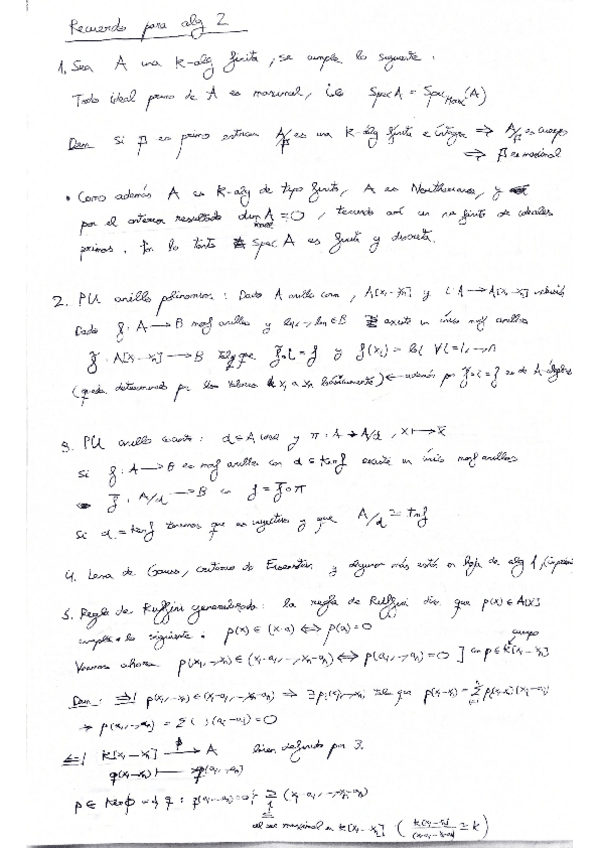 Recuerdo para alg 2
1. Sea A una k-alg finita, se cumple lo siguiente:
Todo ideal primo de A es maximal, i.e. Spec A = Spec Max (A)
Dem Si p es primo entonces A/p es una k-alg finita e íntegra ⇒ A/p es cuerpo
⇒ p es maximal
• Como además A es k-alg de tipo finito, A es Noetheriano, y
por el anterior resultado dim A = 0, teniendo así un nº finito de ideales
primos. Por lo tanto Spec A es finito y discreto.
2. PU anillo polinomios: Dado A anillo conm, A[x1 - xn] y i: A → A[x1 - xn] inclusión
Dado f: A → B morf anillos y b1, -, bn ∈ B existe un único morf anillos
f̄: A[x1 - xn] → B tal que f̄∘i = f y f̄(xi) = bi ∀i=1, -, n
(queda determinado por los valores x1 a xn básicamente) ← además por f̄∘i = f es de A-álgebras
3. PU anillo cociente: α ⊂ A ideal y π: A → A/α, x ↦ x̄
Si f: A → B es morf anillos con α ⊂ ker f existe un único morf anillos
f̄: A/α → B con f = f̄∘π
Si α = ker f tenemos que es inyectivo y que A/α ≃ Im f
4. Lema de Gauss, criterio de Eisenstein y alguno más está en hoja de alg 1
5. Regla de Ruffini generalizada: la regla de Ruffini dice que p(x) ∈ A[x]
cumple lo siguiente: p(x) ∈ (x-a) ⇔ p(a) = 0
cuerpo
Veamos ahora p(x1, -, xn) ∈ (x1-a1, -, xn-an) ⇔ p(a1, -, an) = 0 ] con p ∈ k[x1 - xn]
Dem: ⇒| p(x1, -, xn) ∈ (x1-a1, -, xn-an) ⇒ ∃ pi(x1, -, xn) tal que p(x1-xn) = Σ pi(x1-xn)(xi-ai)
⇒ p(a1, -, an) = Σ ( )(ai-ai) = 0
⇐| k[x1 - xn] → A bien definido por 3.
q(x1-xn) ↦ q(a1, an)
p ∈ Ker ϕ = {q : q(a1-an)=0} ⊇ (x1-a1, -, xn-an)
al ser maximal en k[x1 - xn] (k[x1-xn]/(x1-a1 - xn-an) ≃ k)